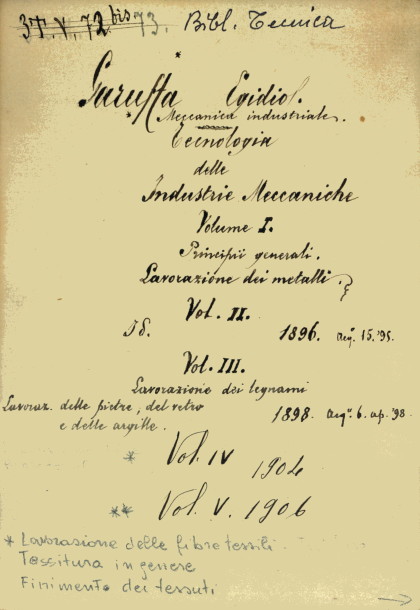 3T. V. 72 bis 73. Bibl. Tecnica
Garuffa Egidio.
Meccanica industriale.
Tecnologia
delle
Industrie Meccaniche
Volume I.
Principii generali.
Lavorazione dei metalli.
Vol. II.
Id. 1896. Acq. 15. '95.
Vol. III.
Lavorazione dei legnami
Lavoraz. delle pietre, del vetro 1898. Acqo. 6. ap. '98.
e delle argille.
* Vol. IV 1904
** Vol. V. 1906
* Lavorazione delle fibre tessili.
Tessitura in genere
Finimento dei tessuti
→